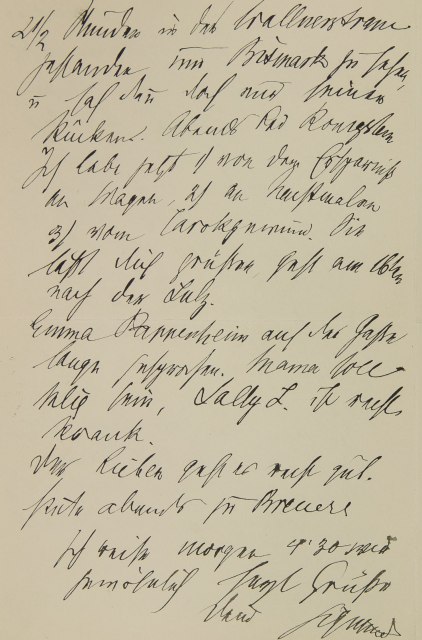 2 1/2 Stunden in der Wallnerstrasse
gestanden um Bismarck zu sehen,
u sah dan doch nur seinen
Rücken. Abends bei Königstein
Ich lebe jetzt 1) von dem Ersparniß
an Wagen, 2) an Nachtmalen
3) vom Tarokgewinn. Die
läßt Dich grüßen, geht am 16ten
nach der Sulz.
Emma Pappenheim auf der Gasse
lange gesprochen. Mama soll
selig sein, Sally L. ist recht
krank.
Den Lieben geht es recht gut.
Heute abends zu Breuers
Ich reise morgen 4 30 wie
gewöhnlich Herzl Grüße
Dein Sigmund